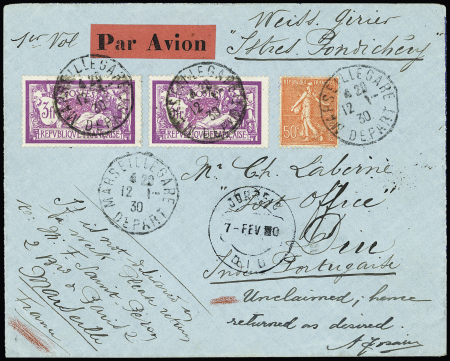 1er Vol
Par Avion
Weiss. Girier
"Istres. Pondichéry"
3f
REPVBLIQVE FRANÇAISE
REPVBLIQVE FRANÇAISE
50c
MARSEILLE GARE
4 20
12 -1-
30
DEPART
MARSEILLE GARE
12 -1-
30
DEPART
MARSEILLE GARE
4 20
12 -1-
30
DEPART
MARSEILLE GARE
4 20
12 -1-
30
DEPART
Mr Ch. Laberne
"Post Office"
Diu
Inde Portugaise
7-FEV 30
DIU
If it not delivered in
week Please return
to: M. F. Saint
2
Marseille
France
Unclaimed; hence
returned as desired.